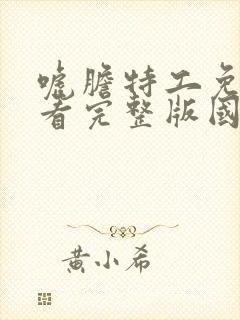 唬膽特工免
看完整版國
黃小希